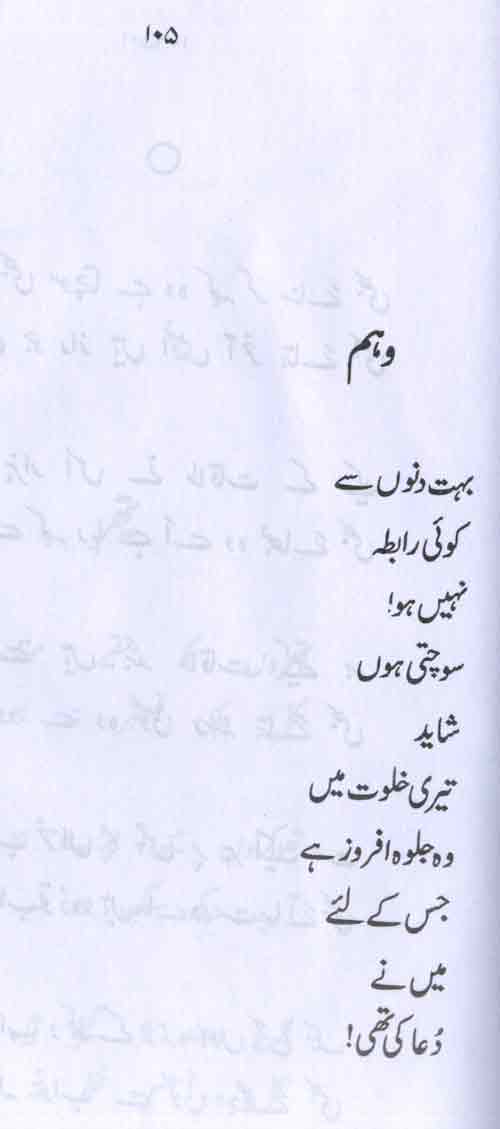 ۱۰۵
وہم
بہت دنوں سے
کوئی رابطہ
نہیں ہوا
سوچتی ہوں
شاید
تیری خلوت میں
وہ جلوہ افروز ہے
جس کے لئے
میں نے
دُعا کی تھی!